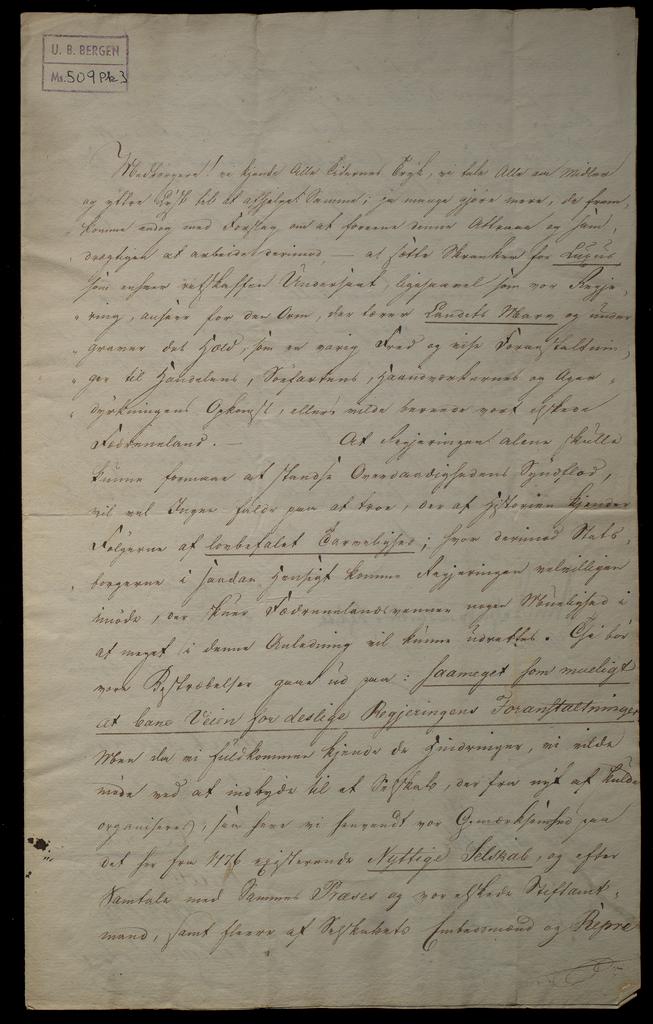 U. B. BERGEN
Ms. 509 Pk 3
Medborgere! vi kjende Alle Tidernes Tryk, vi tale Alle om Midler
og yttre Lyst til at afhjelpe Samme; ja mange gjöre mere, de frem,
komme endog med Forslag om at forene denne Attraae og sam,
drægtigen at arbeide derimod — at sætte Skranker for Luxus
som enhver retskaffen Undersaat, ligesaavel som vor Regje,
ring, anseer for den Orm, der tærer Landets Marv og under
graver det Held, som en varig Fred og vise Foranstaltnin,
ger til Handelens, Söefartens, Haandværkernes og Ager,
dyrkningens Opkomst, ellers vilde berede vort elskede
Födreneland. — At Regjeringen alene skulle
kunne formaae at standse Overdaadighedens Syndflod,
vil vel Ingen falde paa at troe, der af Historien kjender
Fölgerne af lovbefalet Tarvelighed; hvor derimod Stats,
borgerne i saadan Hensigt komme Regjeringen velvilligen
imöde, der skuer Födrenelandsvennen nogen Muelighed i
at meget i denne Anledning vil kunne udrettes. Thi bör
vore Bestræbelser gaae ud paa: saameget som mueligt
at bane Veien for deslige Regjeringens Foranstaltninger
Men da vi fuldkommen kjende de Hindringer, vi vilde
möde ved at indbyde til et Selskab, der fra nyt af skulde
organiseres, saa have vi henvendt vor Opmærksomhed paa
det her fra 1776 existerende Nyttige Selskab, og efter
Samtale med Sammes Præses og vor elskede Stiftamt,
mand, samt fleere af Selskabets Embedsmænd og Repre